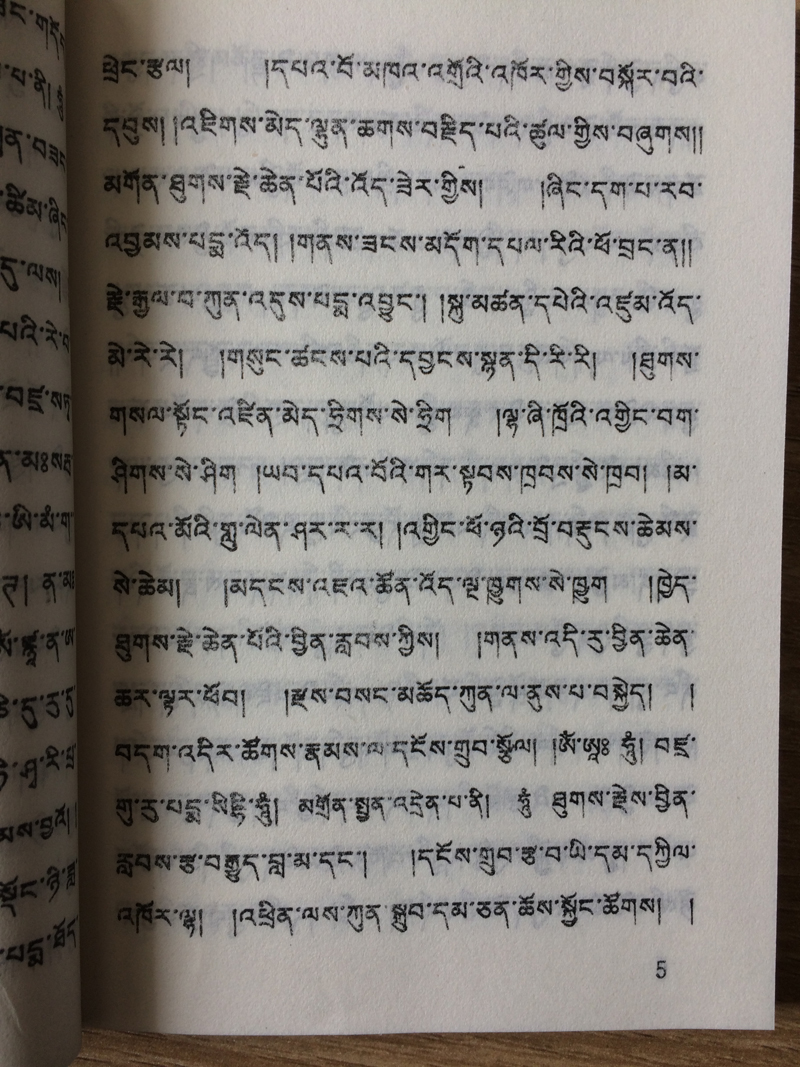 ཕྲེང་རྩལ། །དཔའ་བོ་མཁའ་འགྲོའི་འཁོར་གྱིས་བསྐོར་བའི་
དབུས། །འཇིགས་མེད་ལྷུན་ཆགས་བརྗིད་པའི་ཚུལ་གྱིས་བཞུགས།།
མགོན་ཐུགས་རྗེ་ཆེན་པོའི་འོད་ཟེར་གྱིས། །ཞིང་དག་པ་རབ་
འབྱམས་པདྨ་འོད། །གནས་ཟངས་མདོག་དཔལ་རིའི་ཕོ་བྲང་ན།།
རྗེ་རྒྱལ་བ་ཀུན་འདུས་པདྨ་འབྱུང་། །སྐུ་མཚན་དཔེའི་འཛུམ་འོད་
མེ་རེ་རེ། །གསུང་ཚངས་པའི་དབྱངས་སྙན་དི་རི་རི། །ཐུགས་
གསལ་སྟོང་འཛིན་མེད་ཧྲིགས་སེ་ཧྲིག །ལྟ་ཞི་ཁྲོའི་འགྱིང་བག་
ཤིགས་སེ་ཤིག །ཡབ་དཔའ་བོའི་གར་སྟབས་ཁྲབས་སེ་ཁྲབ། །མ་
དཔའ་མོའི་གླུ་ལེན་ཤར་ར་ར། །འགྱིང་ཕོ་ཉའི་བྲོ་བརྡུངས་ཆེམས་
སེ་ཆེམ། །མདངས་འཇའ་ཚོན་འོད་ལྔ་ཁྱུགས་སེ་ཁྱུག །ཁྱེད་
ཐུགས་རྗེ་ཆེན་པོའི་བྱིན་རླབས་ཀྱིས། །གནས་འདི་རུ་བྱིན་ཆེན་
ཆར་ལྟར་ཕོབ། །རྫས་བསང་མཆོད་ཀུན་ལ་ནུས་པ་བསྐྱེད། །
བདག་འདིར་ཚོགས་རྣམས་ལ་དངོས་གྲུབ་སྩོལ། །ཨོཾ་ཨཱཿ་ཧཱུྃ། བཛྲ་
གུ་རུ་པདྨ་སིདྡྷི་ཧཱུྃ། མགྲོན་སྤྱན་འདྲེན་པ་ནི། ཧཱུྃ ཐུགས་རྗེས་བྱིན་
རླབས་རྩ་བརྒྱུད་བླ་མ་དང་། །དངོས་གྲུབ་རྩ་བ་ཡི་དམ་དཀྱིལ་
འཁོར་ལྷ། །འཕྲིན་ལས་ཀུན་སྒྲུབ་དམ་ཅན་ཆོས་སྐྱོང་ཚོགས། །
5